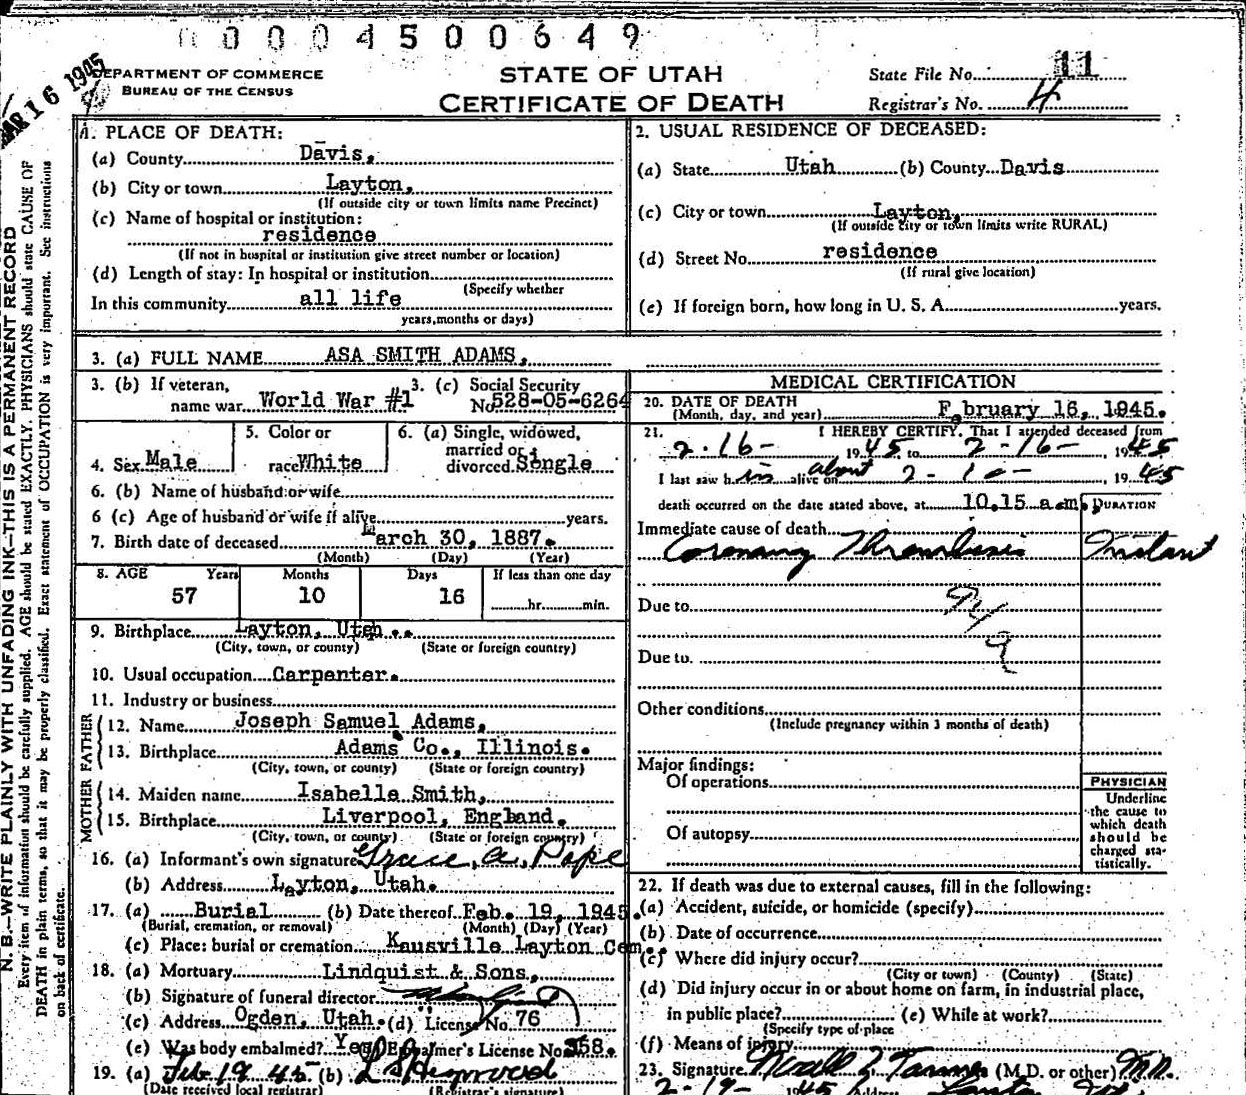 0004500649
MAR 16 1945
DEPARTMENT OF COMMERCE
BUREAU OF THE CENSUS
STATE OF UTAH
CERTIFICATE OF DEATH
State File No. 11
Registrar's No. 4
N. B.—WRITE PLAINLY WITH UNFADING INK—THIS IS A PERMANENT RECORD
Every item of information should be carefully supplied. AGE should be stated EXACTLY. PHYSICIANS should state CAUSE OF
DEATH in plain terms, so that it may be properly classified. Exact statement of OCCUPATION is very important. See instructions
on back of certificate.
1. PLACE OF DEATH:
(a) County Davis,
(b) City or town Layton,
(If outside city or town limits name Precinct)
(c) Name of hospital or institution:
residence
(If not in hospital or institution give street number or location)
(d) Length of stay: In hospital or institution
(Specify whether
In this community all life
years, months or days)
2. USUAL RESIDENCE OF DECEASED:
(a) State Utah (b) County Davis
(c) City or town Layton,
(If outside city or town limits write RURAL)
(d) Street No. residence
(If rural give location)
(e) If foreign born, how long in U. S. A. years.
3. (a) FULL NAME ASA SMITH ADAMS,
3. (b) If veteran, name war World War #1
3. (c) Social Security No 528-05-6264
4. Sex Male
5. Color or race White
6. (a) Single, widowed, married or divorced Single
6. (b) Name of husband or wife
6 (c) Age of husband or wife if alive years.
7. Birth date of deceased March 30, 1887.
(Month) (Day) (Year)
8. AGE Years Months Days If less than one day
57 10 16 hr. min.
9. Birthplace Layton, Utah..
(City, town, or county) (State or foreign country)
10. Usual occupation Carpenter.
11. Industry or business
FATHER
12. Name Joseph Samuel Adams,
13. Birthplace Adams Co., Illinois.
(City, town, or county) (State or foreign country)
MOTHER
14. Maiden name Isabelle Smith,
15. Birthplace Liverpool, England.
(City, town, or county) (State or foreign country)
16. (a) Informant's own signature Grace A. Pope
(b) Address Layton, Utah.
17. (a) Burial (b) Date thereof Feb. 19, 1945.
(Burial, cremation, or removal) (Month) (Day) (Year)
(c) Place: burial or cremation Kausville Layton Cem..
18. (a) Mortuary Lindquist & Sons,
(b) Signature of funeral director
(c) Address Ogden, Utah. (d) License No. 76
(e) Was body embalmed? Yes Embalmer's License No. 358.
19. (a) Feb 19 45 (b)
(Date received local registrar) (Registrar's signature)
MEDICAL CERTIFICATION
20. DATE OF DEATH
(Month, day, and year) February 16, 1945.
21. I HEREBY CERTIFY, That I attended deceased from
2-16- 1945 to 2-16-, 1945
I last saw him alive on about 2-10-, 1945
death occurred on the date stated above, at 10.15 a.m.
DURATION
Immediate cause of death
Coronary Thrombosis Instant
Due to
94
Due to.
9
Other conditions
(Include pregnancy within 3 months of death)
Major findings:
Of operations
Of autopsy
PHYSICIAN
Underline
the cause to
which death
should be
charged sta-
tistically.
22. If death was due to external causes, fill in the following:
(a) Accident, suicide, or homicide (specify)
(b) Date of occurrence
(c) Where did injury occur?
(City or town) (County) (State)
(d) Did injury occur in or about home on farm, in industrial place,
in public place? (e) While at work?
(Specify type of place
(f) Means of injury
23. Signature Noall Z Tanner (M.D. or other) M.D.
2-19- 1945 Address Layton